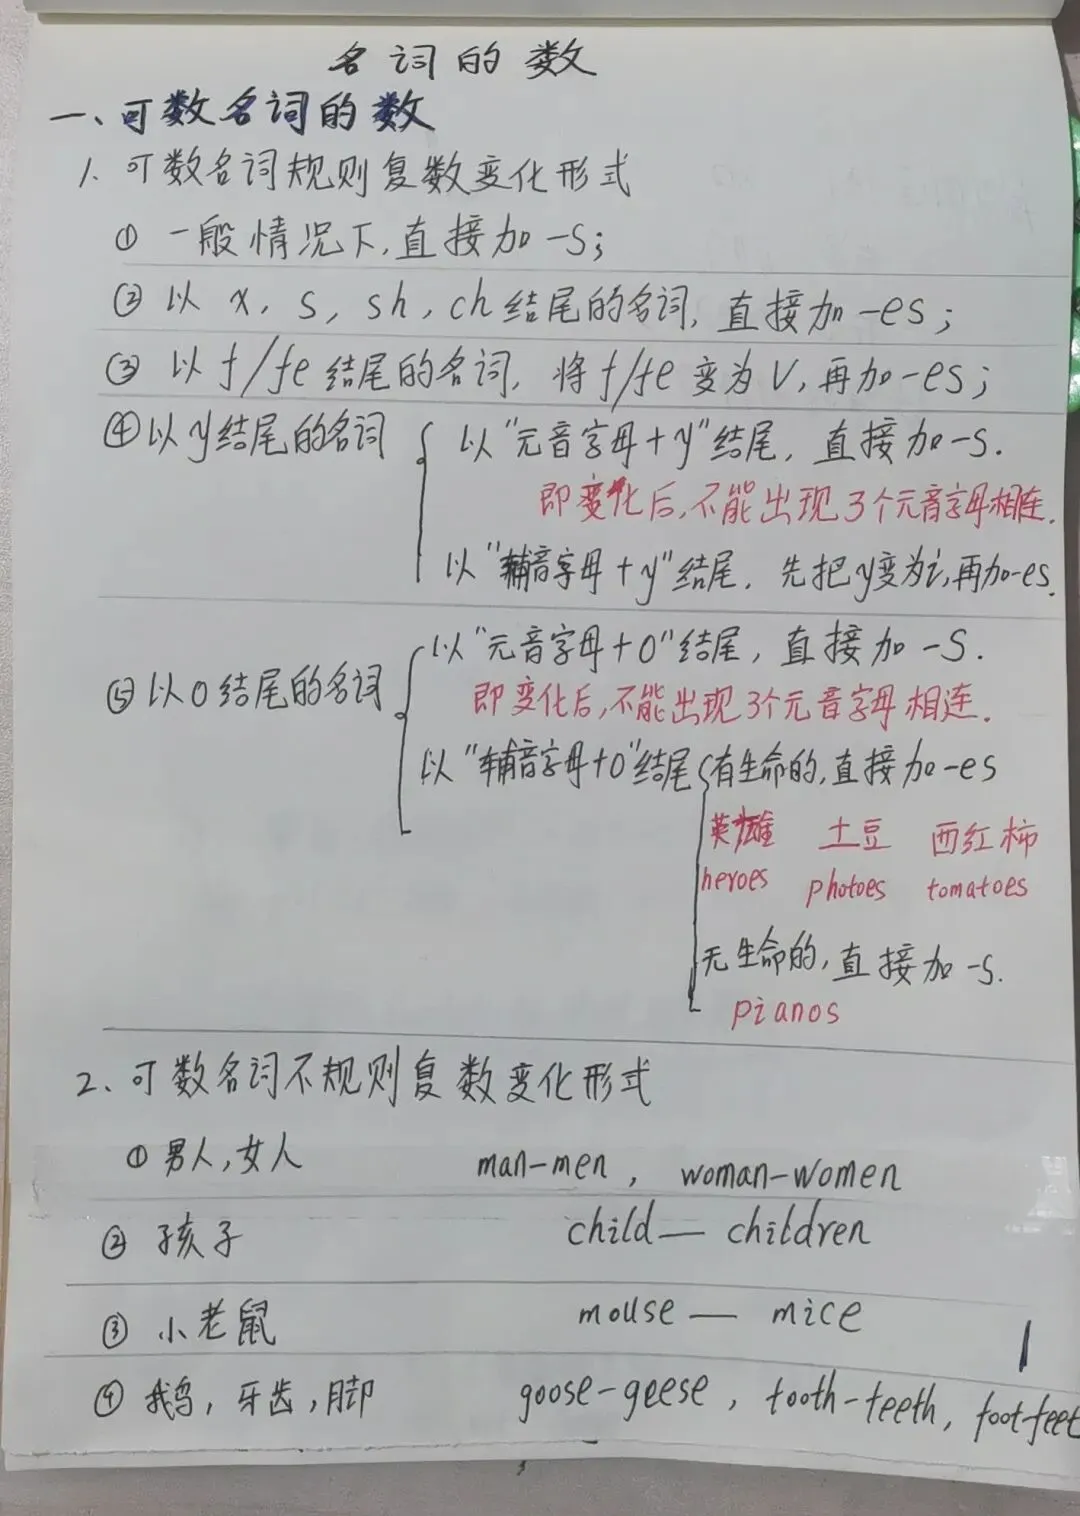 名词的数
一、可数名词的数
1、可数名词规则复数变化形式
① 一般情况下,直接加-s;
② 以 x, s, sh, ch结尾的名词,直接加-es;
③ 以f/fe结尾的名词,将f/fe变为v,再加-es;
④以y结尾的名词
以"元音字母+y"结尾,直接加-s.
即变化后,不能出现3个元音字母相连.
以"辅音字母+y"结尾,先把y变为i,再加-es.
⑤以o结尾的名词
以"元音字母+o"结尾,直接加-s.
即变化后,不能出现3个元音字母相连.
以"辅音字母+o"结尾
有生命的,直接加-es
英雄 土豆 西红柿
heroes photoes tomatoes
无生命的,直接加-s.
pianos
2、可数名词不规则复数变化形式
①男人,女人 man-men, woman-women
② 孩子 child—children
③ 小老鼠 mouse—mice
④ 鹅,牙齿,脚 goose-geese, tooth-teeth, foot-feet